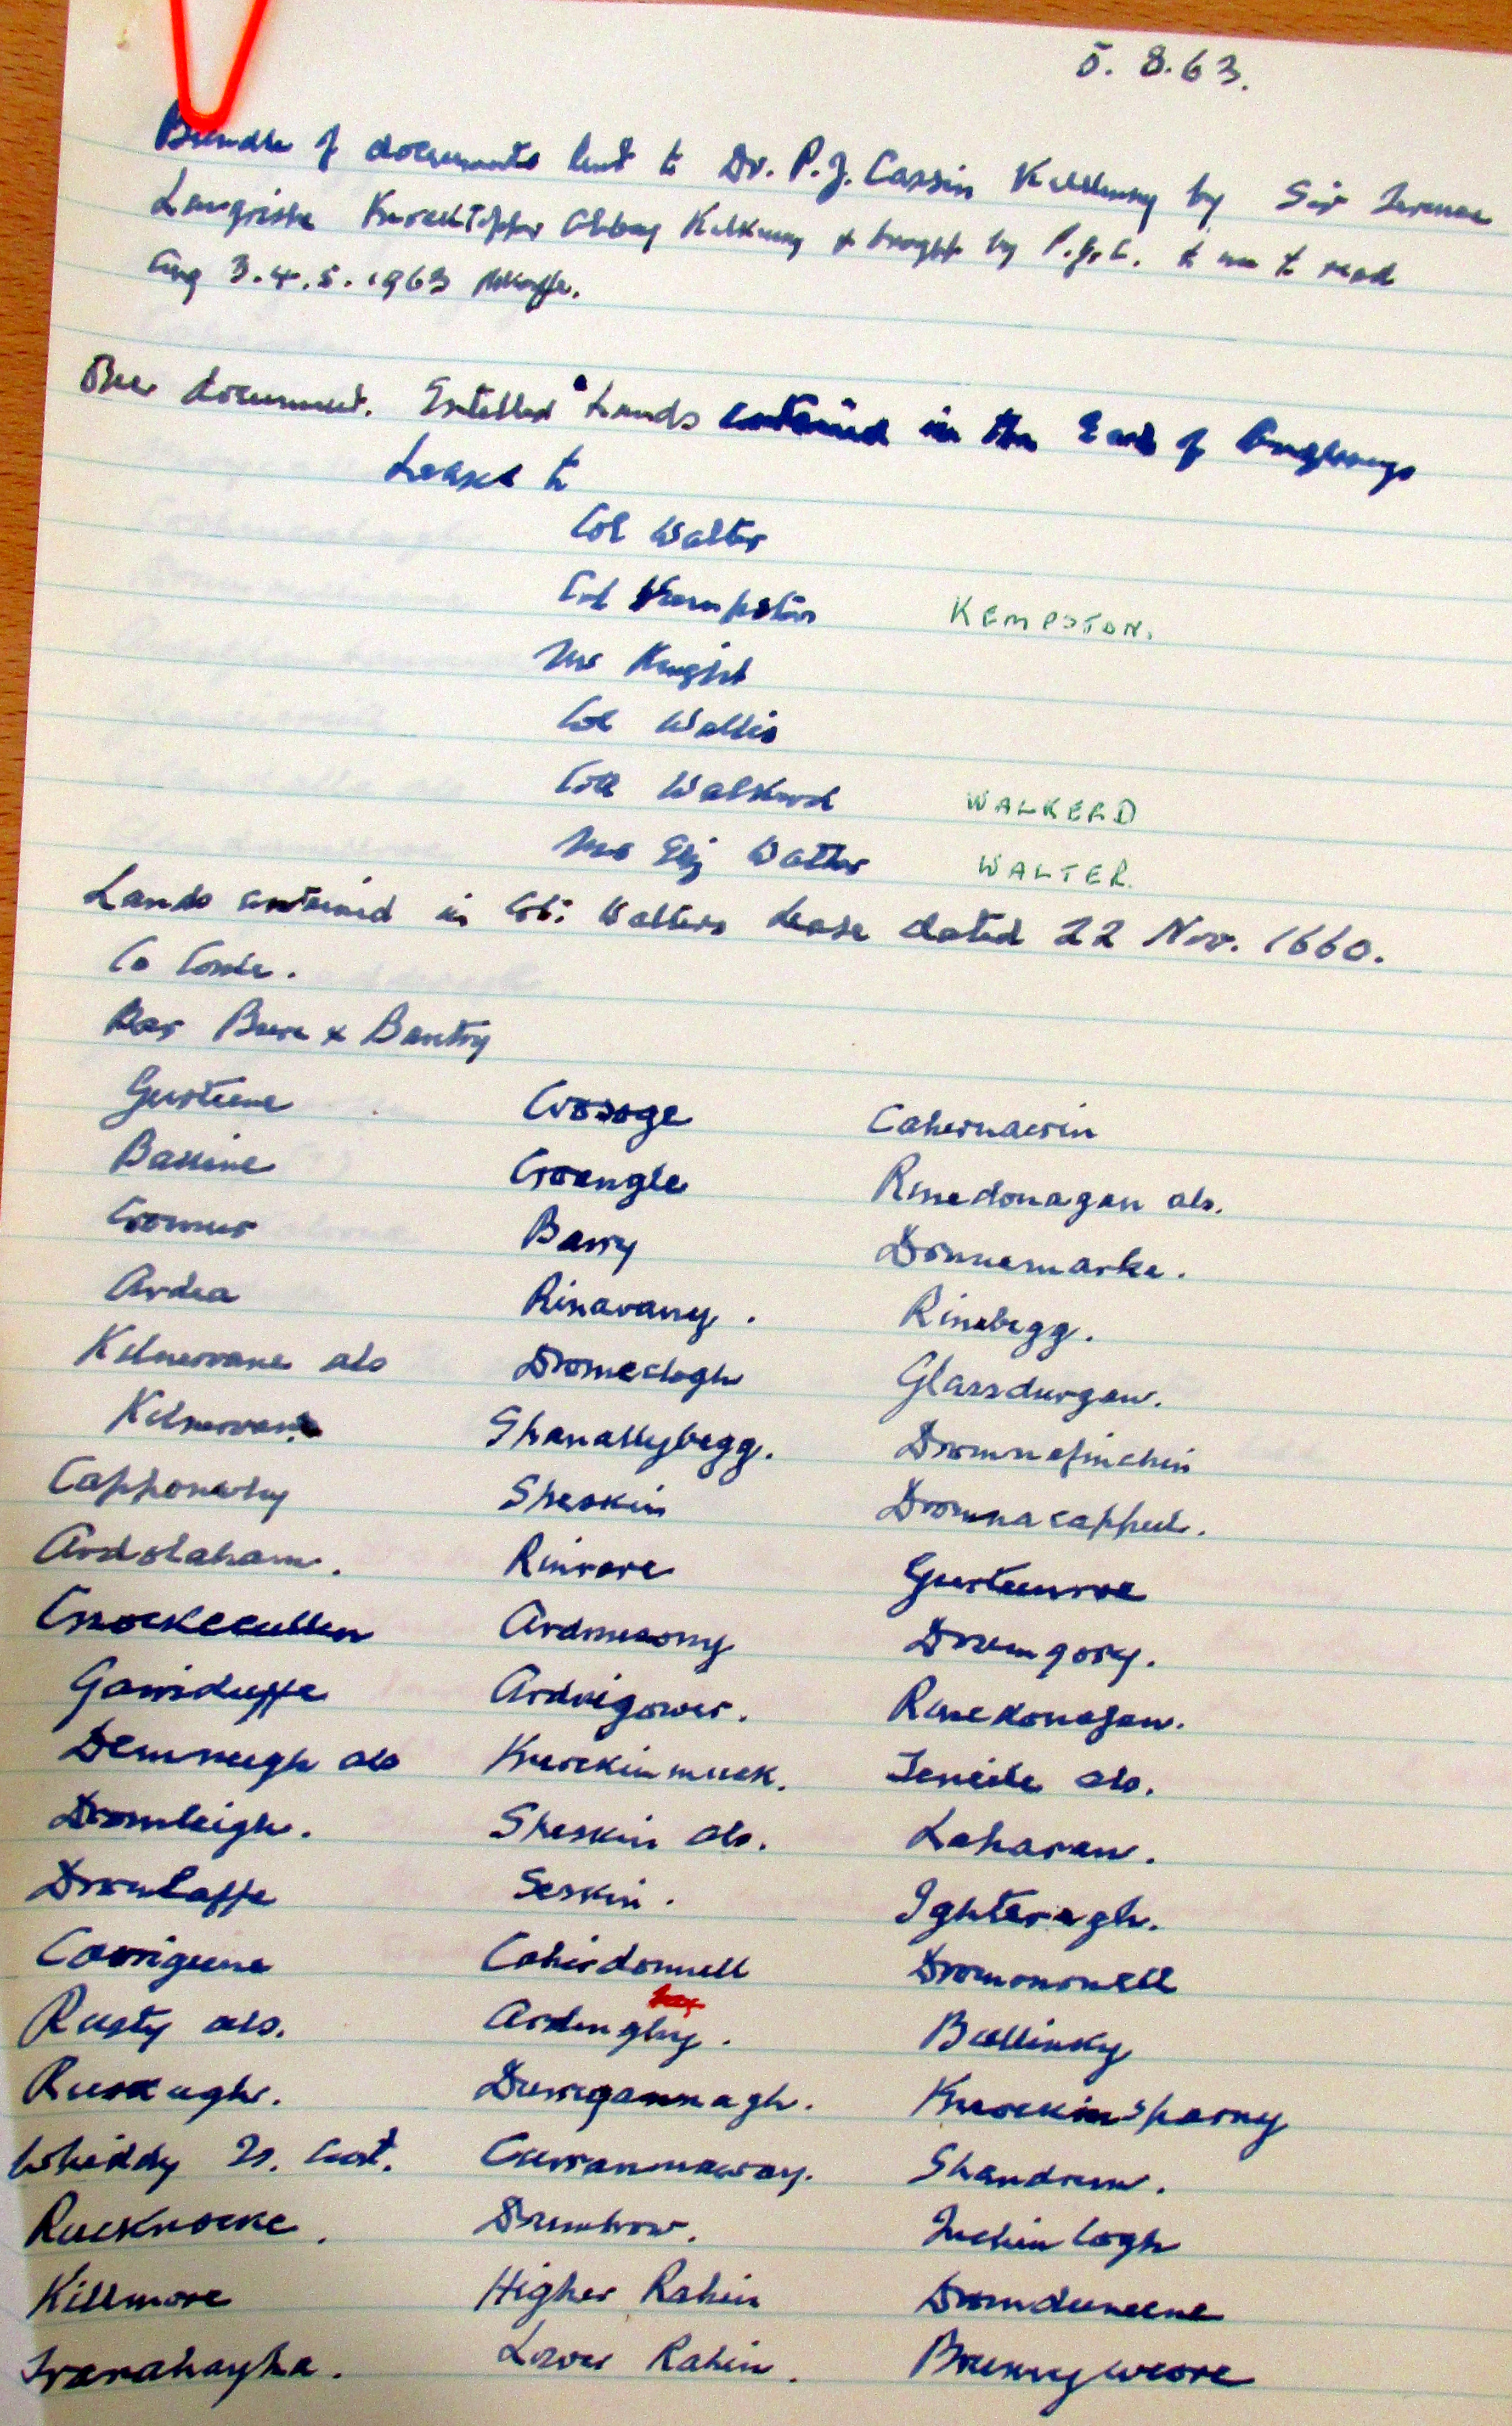 5. 8. 63.
Bundle of documents lent to Dr. P.J. Cassin Kilkenny by Sir Terence
Langrishe Knocktopher Abbey Kilkenny & brought by P.J.C. to me to read
Aug 3.4.5. 1963
One document. Entitled "Lands contained in the Earl of Angleseys
Lease to
Col Walter
Col Kempston KEMPSTON.
Mr Knight
Col Wallis
Col Walkerd WALKERD
Mr Eliz Walter WALTER.
Lands contained in Col: Walters Lease dated 22 Nov. 1660.
Co Corke.
Bar Beare & Bantry
Gurteene Crosoge Cahernacrin
Bassine Croangle Rinedonagan als.
Cromur Barry Donnemarke.
Ardea Rinavanny. Rinebegg.
Kilnervane als Dromeclogh Glassdurgan.
Kilnervan Shanallybegg. Dromnafinchin
Capponeshy Sheskin Dromnacappul.
Ardolaham. Rinrore Gurteenroe
Cnockecullen Ardnesomy Drumgory.
Garriduffe Ardnigower. Rinedonagan.
Demneegh als Knockinmuck. Teneile als.
Dromleigh. Sheskin als. Laharan.
Dromlaffe Seskin. Ighteragh.
Carrigeene Cahirdonnell Dromononell
Rusty als. Ardinghy. Ballinky
Ruskagh. Derrigannagh. Knockinsparny
Whiddy Is. Curranmacray. Shandrum.
Rucknocke. Drumbrow. Inchinlogh
Killmore Higher Rahin Dromduneene
Tranahayha. Lower Rahin. Breenyweore